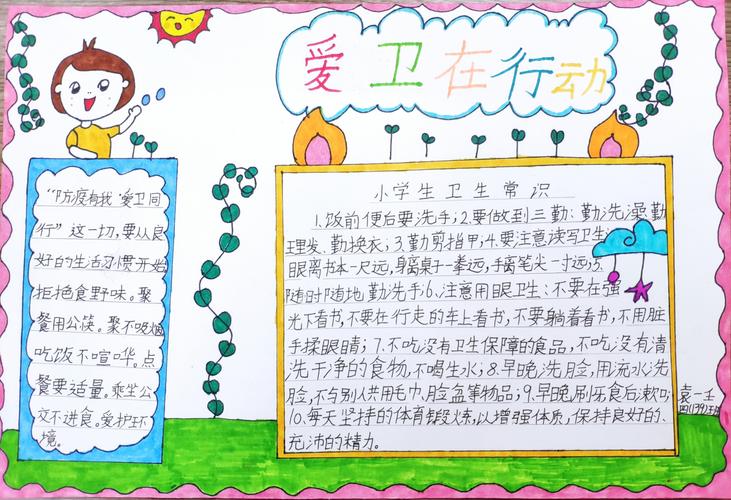 爱卫在行动
"防疫有我 爱卫同
行"这一切,要从良
好的生活习惯开始
拒绝食野味。聚
餐用公筷。聚不吸烟
吃饭不喧哗。点
餐要适量。乘坐公
交不进食。爱护环
境。
小学生卫生常识
1.饭前便后要洗手;2.要做到三勤:勤洗澡、勤
理发、勤换衣;3.勤剪指甲;4.要注意读写卫生:
眼离书本一尺远,身离桌子一拳远,手离笔尖一寸远;5.
随时随地勤洗手;6.注意用眼卫生:不要在强
光下看书,不要在行走的车上看书,不要躺着看书,不用脏
手揉眼睛;7.不吃没有卫生保障的食品,不吃没有清
洗干净的食物,不喝生水;8.早晚洗脸,用流水洗
脸,不与别人共用毛巾、脸盆等物品;9.早晚刷牙食后漱口;
10.每天坚持的体育锻炼,以增强体质,保持良好的、
充沛的精力。
袁一
四(139)班